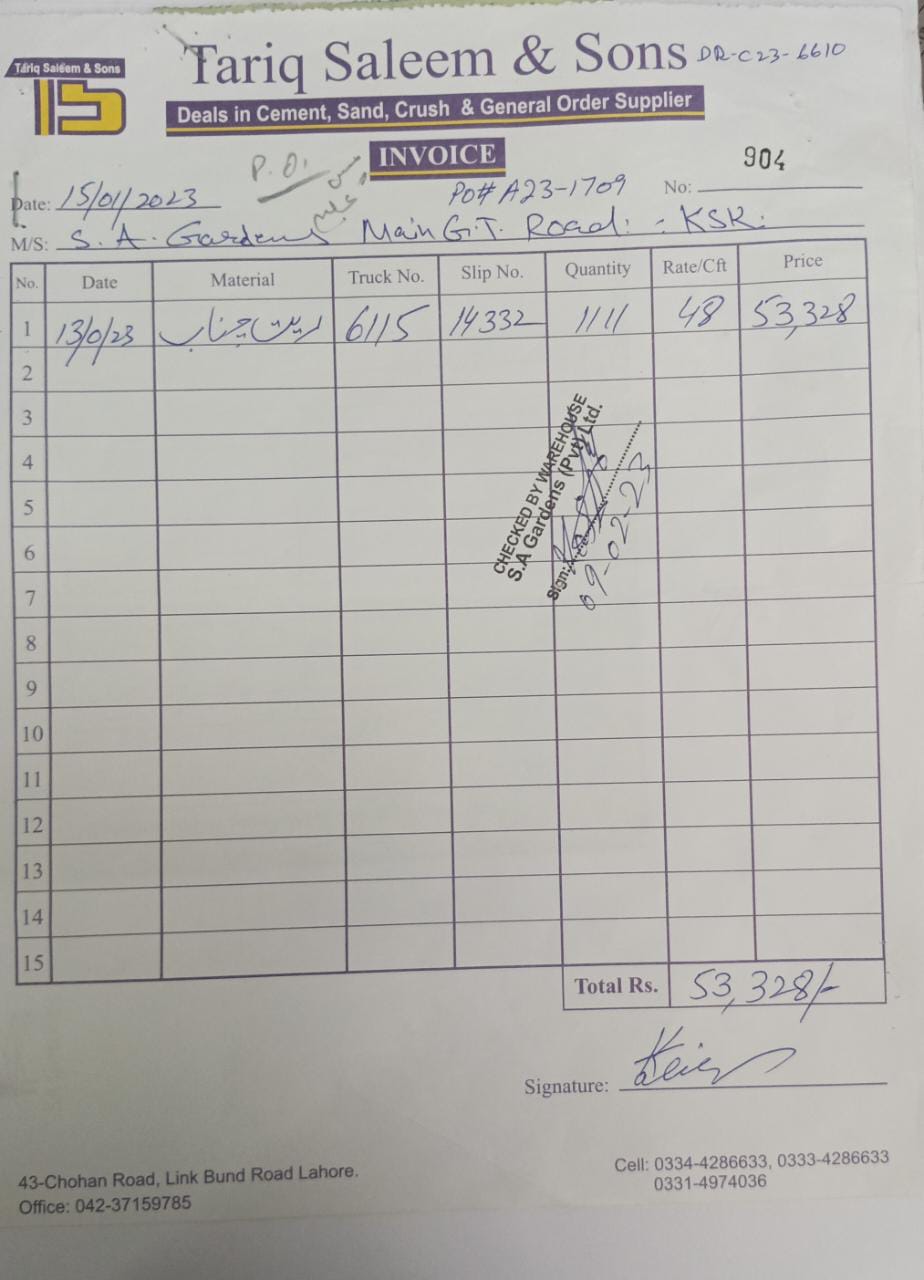 Tariq Saleem & Sons
Tariq Saleem & Sons DR-C23-6610
Deals in Cement, Sand, Crush & General Order Supplier
INVOICE
904
P.O.
Date: 15/01/2023 PO# A23-1709 No:
M/S: S.A. Gardens Main G.T. Road: - KSK.
No. Date Material Truck No. Slip No. Quantity Rate/Cft Price
1 13/0/23 ریت چناب 6115 14332 1111 48 53,328
2
3
4
5
6
7
8
9
10
11
12
13
14
15
CHECKED BY WAREHOUSE
S.A Gardens (Pvt) Ltd.
Sign:
09-02-23
Total Rs. 53,328/-
Signature:
43-Chohan Road, Link Bund Road Lahore.
Office: 042-37159785
Cell: 0334-4286633, 0333-4286633
0331-4974036